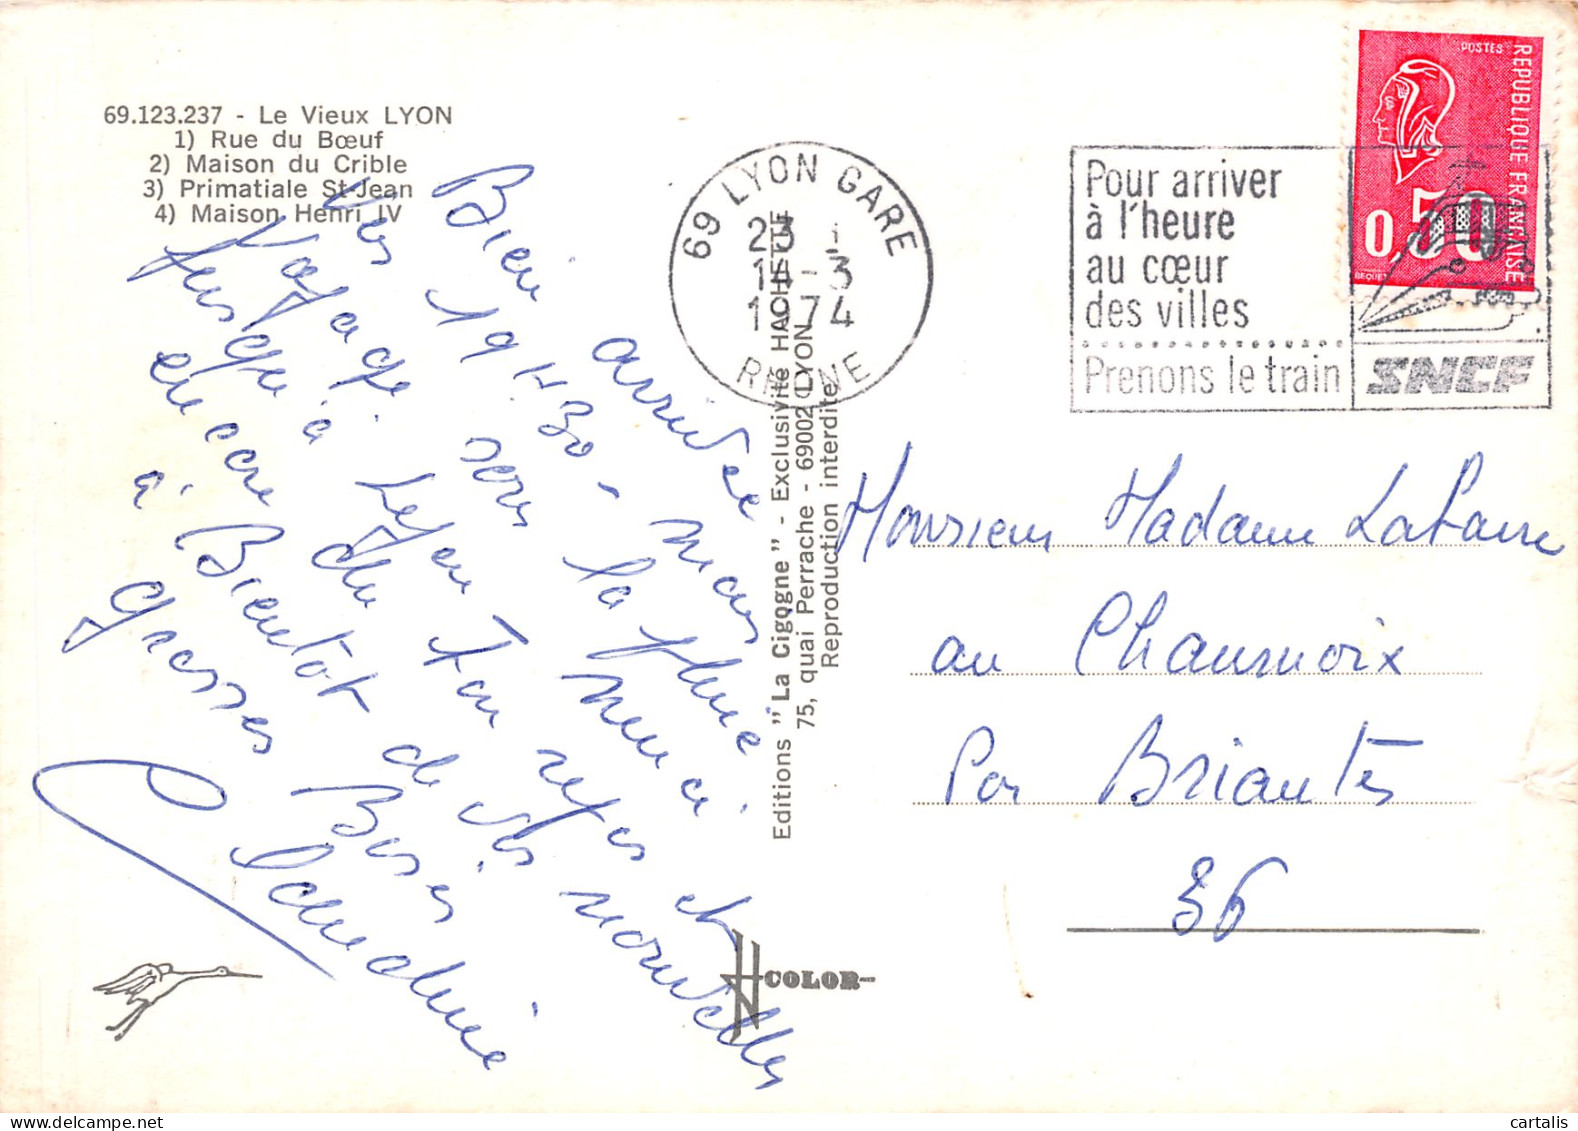 69.123.237 - Le Vieux LYON
1) Rue du Bœuf
2) Maison du Crible
3) Primatiale St-Jean
4) Maison Henri IV
Bien arrivée
vers 19H30 - mais
voyage sous la pluie
jusqu'à
encore du
à Bientôt de vos nouvelles
grosses Bises
Claudine
Editions "La Cigogne" - Exclusivité HACHETTE
75, quai Perrache - 69002 LYON
Reproduction interdite
COLOR
69 LYON GARE
23
14-3
1974
RHONE
Pour arriver
à l'heure
au cœur
des villes
Prenons le train
SNCF
POSTES
REPUBLIQUE FRANÇAISE
0,50
BEQUET
Monsieur Madame
au Chaumoix
Par Briantes
36
cartalis